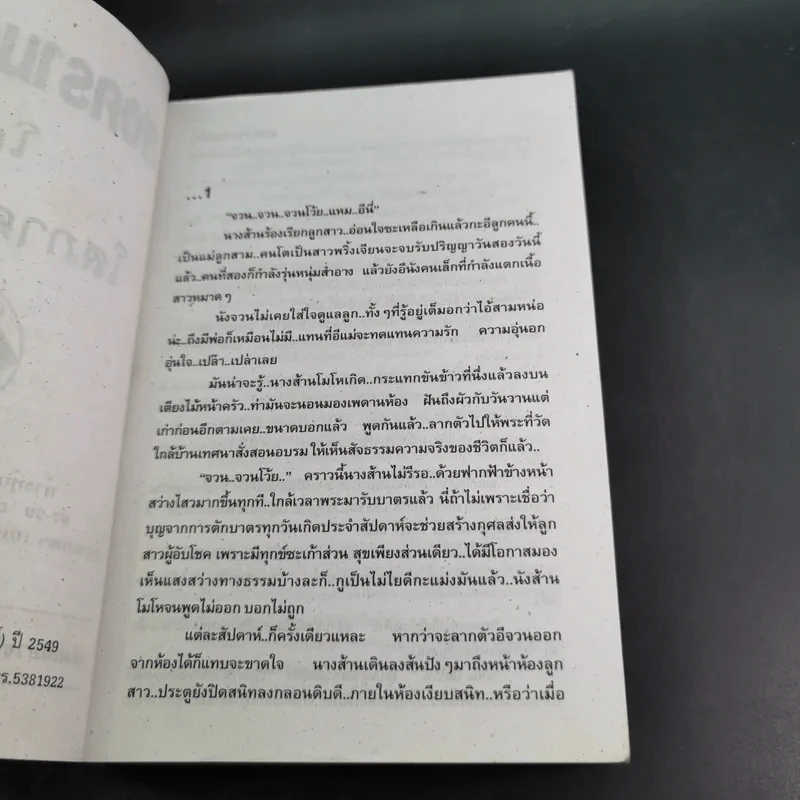 ...1
"จวน..จวน..จวนโว้ย..แหม..อีนี่"
นางส้านร้องเรียกลูกสาว..อ่อนใจซะเหลือเกินแล้วกะอีลูกคนนี้..
เป็นแม่ลูกสาม..คนโตเป็นสาวพริ้งเจียนจะจบรับปริญญาวันสองวันนี้
แล้ว..คนที่สองก็กำลังรุ่นหนุ่มสำอาง แล้วยังอีนังคนเล็กที่กำลังแตกเนื้อ
สาวหมาด ๆ
นังจวนไม่เคยใส่ใจดูแลลูก..ทั้ง ๆที่รู้อยู่เต็มอกว่าไอ้สามหน่อ
น่ะ..ถึงมีพ่อก็เหมือนไม่มี..แทนที่อีแม่จะทดแทนความรัก ความอุ่นอก
อุ่นใจ..เปล๊า..เปล่าเลย
มันน่าจะรู้..นางส้านโมโหเกิด..กระแทกขันข้าวที่นึ่งแล้วลงบน
เตียงไม้หน้าครัว..ท่ามันจะนอนมองเพดานห้อง ฝันถึงผัวกับวันวานแต่
เก่าก่อนอีกตามเคย..ขนาดบอกแล้ว พูดกันแล้ว..ลากตัวไปให้พระที่วัด
ใกล้บ้านเทศนาสั่งสอนอบรม ให้เห็นสัจธรรมความจริงของชีวิตก็แล้ว..
"จวน..จวนโว้ย.." คราวนี้นางส้านไม่รีรอ..ด้วยฟากฟ้าข้างหน้า
สว่างไสวมากขึ้นทุกที..ใกล้เวลาพระมารับบาตรแล้ว นี่ถ้าไม่เพราะเชื่อว่า
บุญจากการตักบาตรทุกวันเกิดประจำสัปดาห์จะช่วยสร้างกุศลส่งให้ลูก
สาวผู้อับโชค เพราะมีทุกข์ซะเก้าส่วน สุขเพียงส่วนเดียว..ได้มีโอกาสมอง
เห็นแสงสว่างทางธรรมบ้างละก็..กูเป็นไม่ไยดีกะแม่งมันแล้ว..นังส้าน
โมโหจนพูดไม่ออก บอกไม่ถูก
แต่ละสัปดาห์..ก็ครั้งเดียวแหละ หากว่าจะลากตัวอีจวนออก
จากห้องได้ก็แทบจะขาดใจ นางส้านเดินลงส้นปัง ๆมาถึงหน้าห้องลูก
สาว..ประตูยังปิดสนิทลงกลอนดิบดี..ภายในห้องเงียบสนิท..หรือว่าเมื่อ
) ปี 2549
ร.5381922